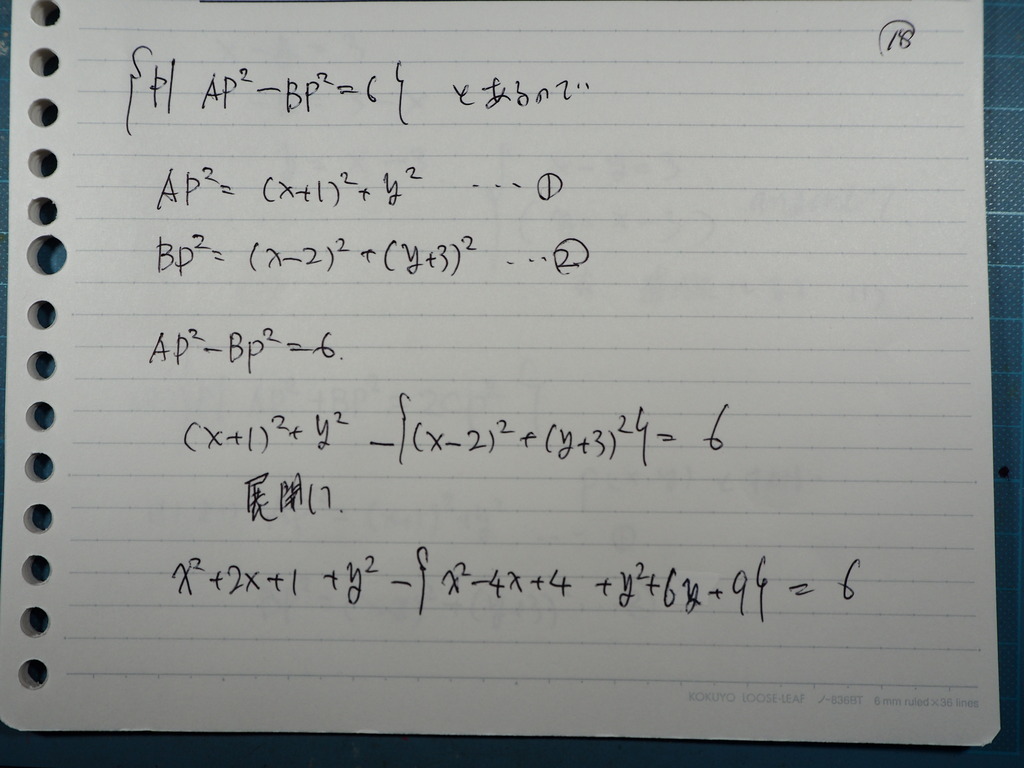 ⑱
{P| AP²-BP²=6} とあるので
AP²= (x+1)²+y² ‥‥①
BP²= (x-2)²+(y+3)² ‥‥②
AP²-BP²=6.
(x+1)²+y² -{(x-2)²+(y+3)²}= 6
展開して
x²+2x+1 +y² -{x²-4x+4 +y²+6y+9} = 6
KOKUYO LOOSE-LEAF ノ-836BT 6mm ruled×36 lines